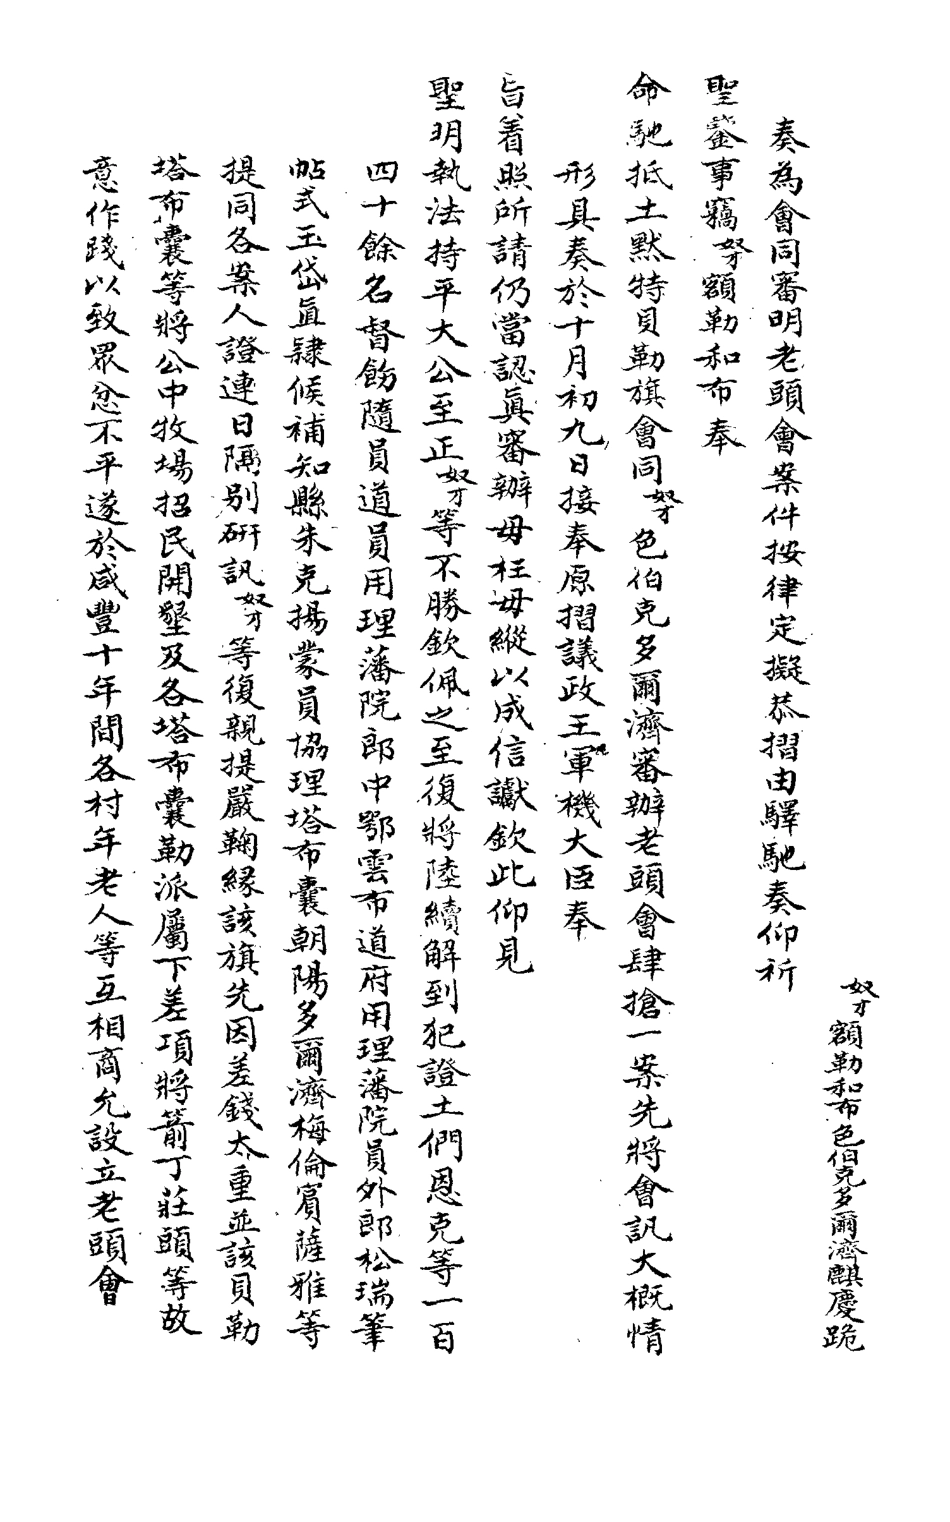 奴才額勒和布色伯克多爾濟麒慶跪
奏為會同審明老頭會案件按律定擬恭摺由驛馳奏仰祈
聖鑒事竊奴才額勒和布奉
命馳抵土默特貝勒旗會同奴才色伯克多爾濟審辦老頭會肆搶一案先將會訊大概情
形具奏於十月初九日接奉原摺議政王軍機大臣奉
旨着照所請仍當認眞審辦毋枉毋縱以成信讞欽此仰見
聖明執法持平大公至正奴才等不勝欽佩之至復將陸續解到犯證土們恩克等一百
四十餘名督飭隨員道員用理藩院郎中鄂雲布道府用理藩院員外郎松瑞筆
帖式玉岱直隸候補知縣朱克揚蒙員協理塔布囊朝陽多爾濟梅倫賓薩雅等
提同各案人證連日隔別研訊奴才等復親提嚴鞫緣該旗先因差錢太重並該貝勒
塔布囊等將公中牧場招民開墾及各塔布囊勒派屬下差項將箭丁莊頭等故
意作踐以致眾忿不平遂於咸豐十年間各村年老人等互相商允設立老頭會